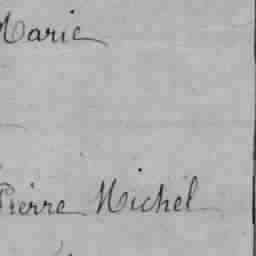 Marie
Pierre Michel